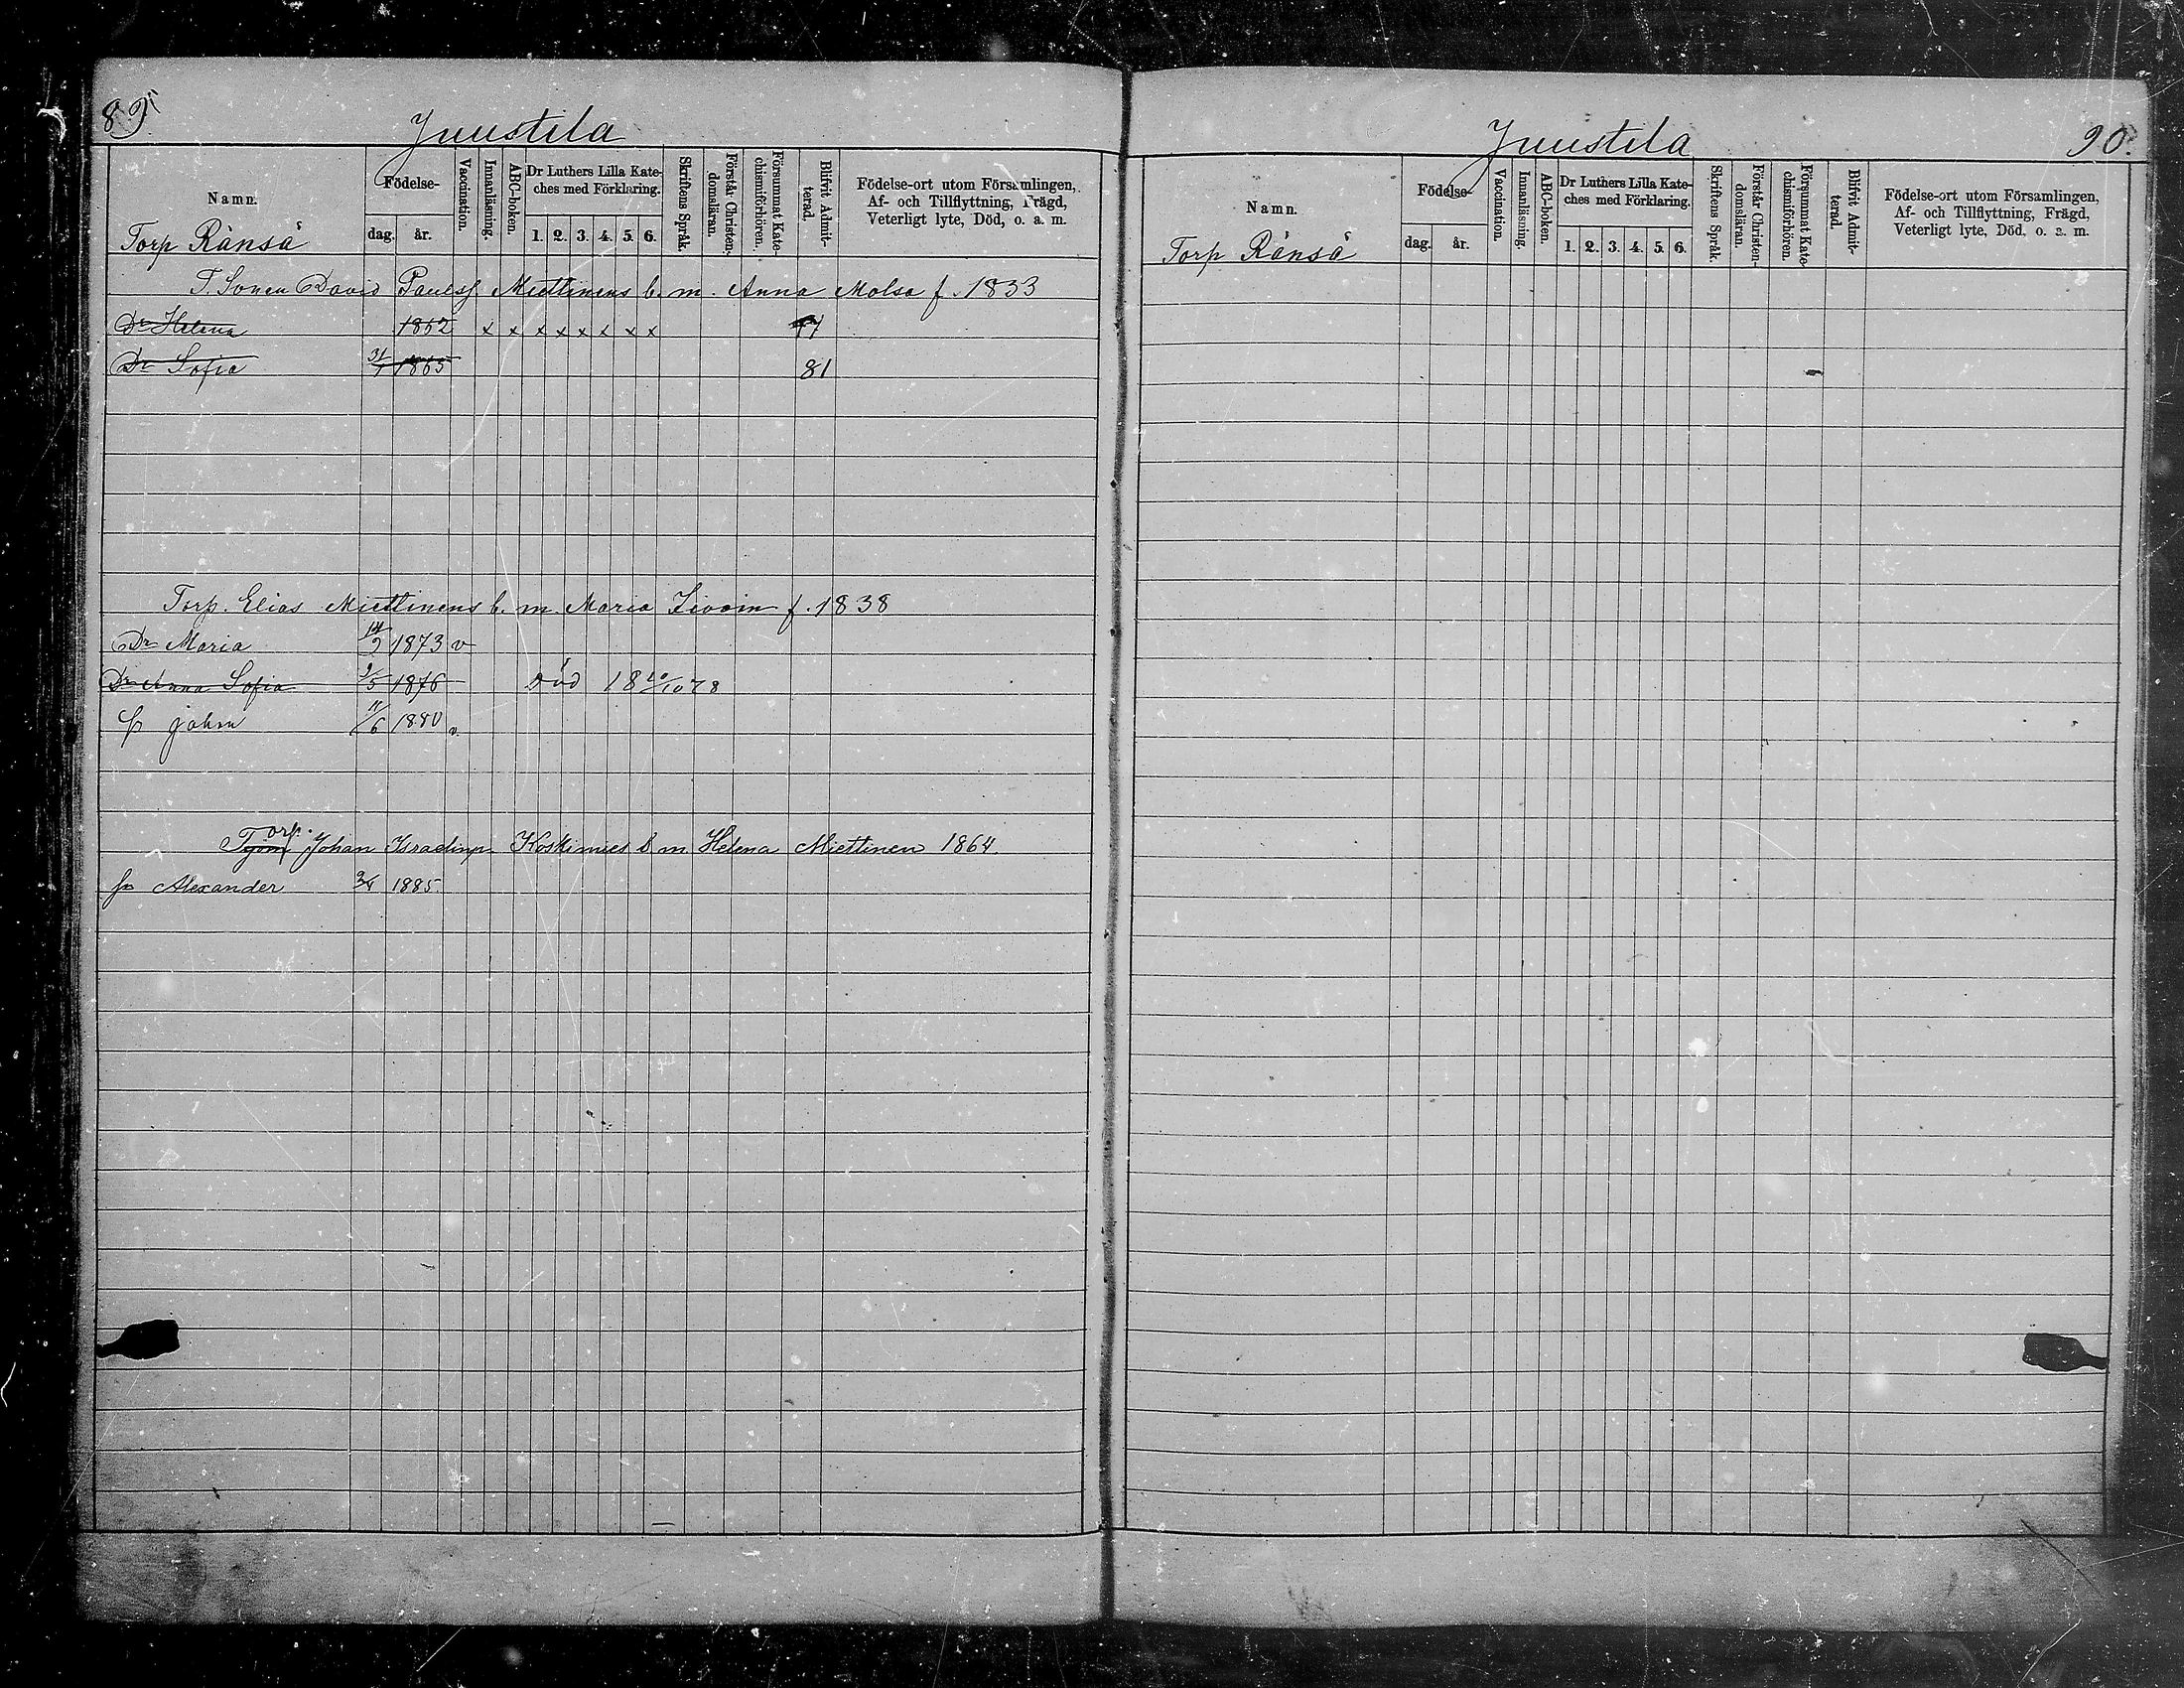 89.
Juustila
Namn.
Födelse-
dag.
år.
Vaccination.
Innanläsning.
ABC-boken.
Dr Luthers Lilla Kate-
ches med Förklaring.
1. 2. 3. 4. 5. 6.
Skriftens Språk.
Förstår Christen-
domsläran.
Försummat Kate-
chismiförhören.
Blifvit Admit-
terad.
Födelse-ort utom Församlingen,
Af- och Tillflyttning, Frägd,
Veterligt lyte, Död, o. a. m.
Torp Ränsä
T. Sonen David Paulsf Miettinens b. m. Anna Molsa f. 1833
Dr Helena 1862 x x x x x x x x
Dr Sofia 31/1 1865 81
Torp. Elias Miettinens b. m. Maria f. 1838
Dr Maria 1873 v
Dr Anna Sofia 1876 död 18 20/10 78
Johan 11/6 1880 v.
Torp. Johan Koskimies b m. Helena Miettinen 1864.
Alexander 1885.
Juustila
90.
Namn.
Födelse-
dag.
år.
Vaccination.
Innanläsning.
ABC-boken.
Dr Luthers Lilla Kate-
ches med Förklaring.
1. 2. 3. 4. 5. 6.
Skriftens Språk.
Förstår Christen-
domsläran.
Försummat Kate-
chismiförhören.
Blifvit Admit-
terad.
Födelse-ort utom Församlingen,
Af- och Tillflyttning, Frägd,
Veterligt lyte, Död, o. a. m.
Torp Ränsä